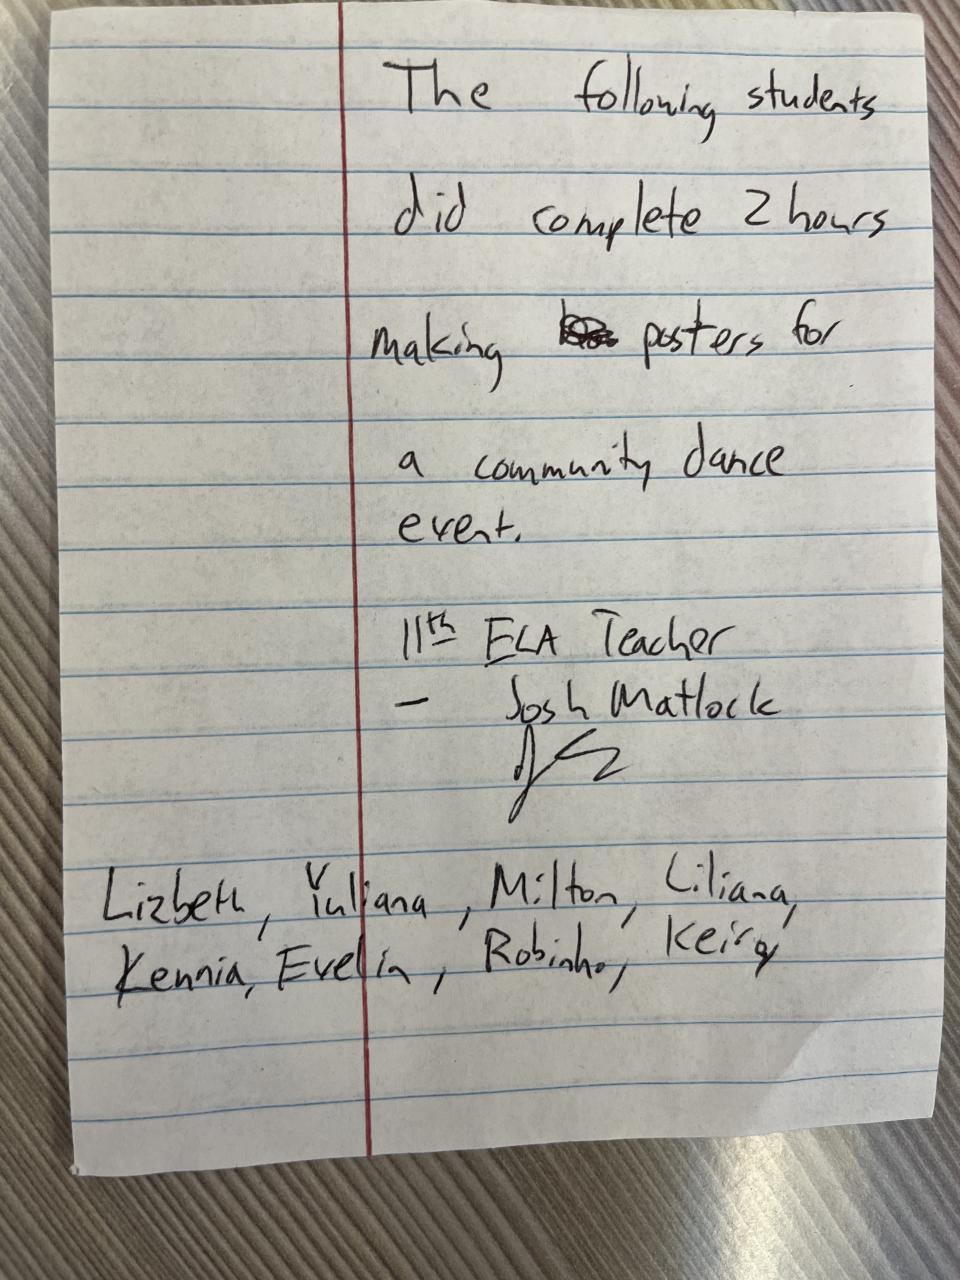 The following students
did complete 2 hours
making posters for
a community dance
event.
11th ELA Teacher
- Josh Matlock
Lizbeth, Yuliana, Milton, Liliana,
Kennia, Evelin, Robinho, Keiry